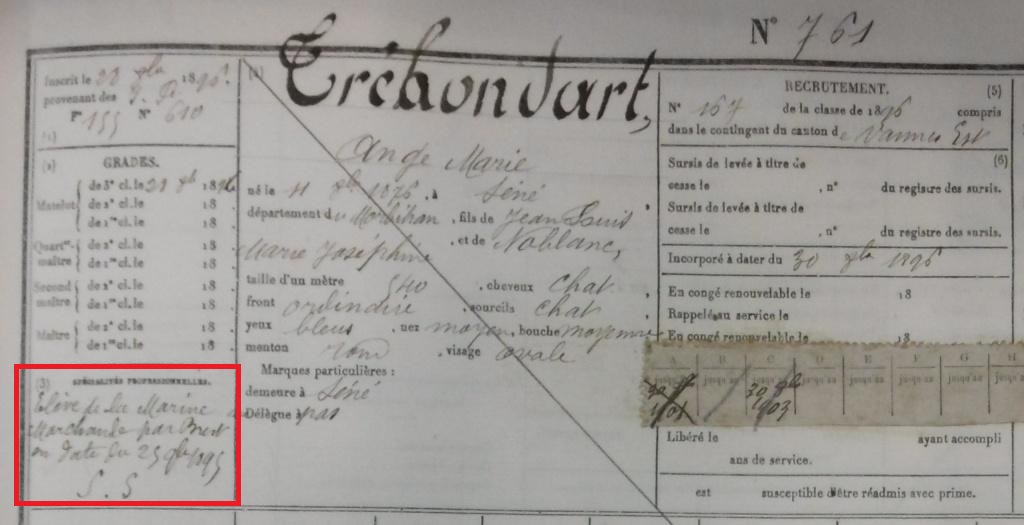 N° 761
Inscrit le 28 9bre 1896.
provenant des I. P.
F° 155 N° 610
(1)
(2) GRADES.
Matelot de 3e cl. le 28 9bre 1896
de 2e cl. le 18 .
de 1re cl. le 18 .
Quartr-maître de 2e cl. le 18
de 1re cl. le 18
Second maître de 2e cl. le 18
de 1re cl. le 18
Maître de 2e cl. le 18
de 1re cl. le 18
(3) SPÉCIALITÉS PROFESSIONNELLES.
Elève de la Marine
Marchande par Brest
en date du 25 9bre 1895
S. S
Tréhondart,
Ange Marie
né le 11 1876, à Séné
département du Morbihan, fils de Jean Louis
Marie Joséphine, et de Noblanc,
taille d'un mètre 540, cheveux chat.
front ordinaire, sourcils chat
yeux bleus, nez moyen, bouche moyenne
menton rond, visage ovale
Marques particulières :
demeure à Séné
Délègue pas
RECRUTEMENT. (5)
N° 167 de la classe de 1896 compris
dans le contingent du canton de Vannes Est
Sursis de levée à titre de (6)
cesse le , n° du registre des sursis.
Sursis de levée à titre de
cesse le , n° du registre des sursis.
Incorporé à dater du 30 9bre 1896
En congé renouvelable le 18
Rappelé au service le
En congé renouvelable le 18
A B C D E F G H
jusqu'au jusqu'au jusqu'au jusqu'au jusqu'au jusqu'au jusqu'au
30 30 9bre
1901 1903
Libéré le ayant accompli
ans de service.
est susceptible d'être réadmis avec prime.